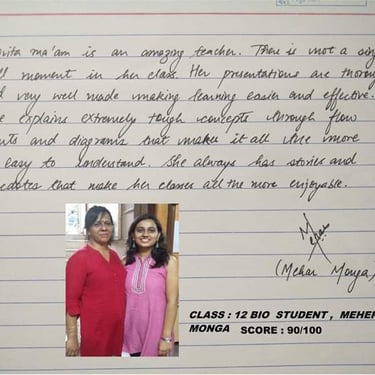 ma'am is an amazing teacher. There is not a
moment in her class. Her presentations are
very well made making learning easier and effective.
explains extremely tough concepts through flow
and diagrams that makes it all the more
easy to understand. She always has stories and
that make her classes all the more enjoyable.
Mehar
(Mehar Monga)
CLASS : 12 BIO STUDENT , MEHER
MONGA SCORE : 90/100